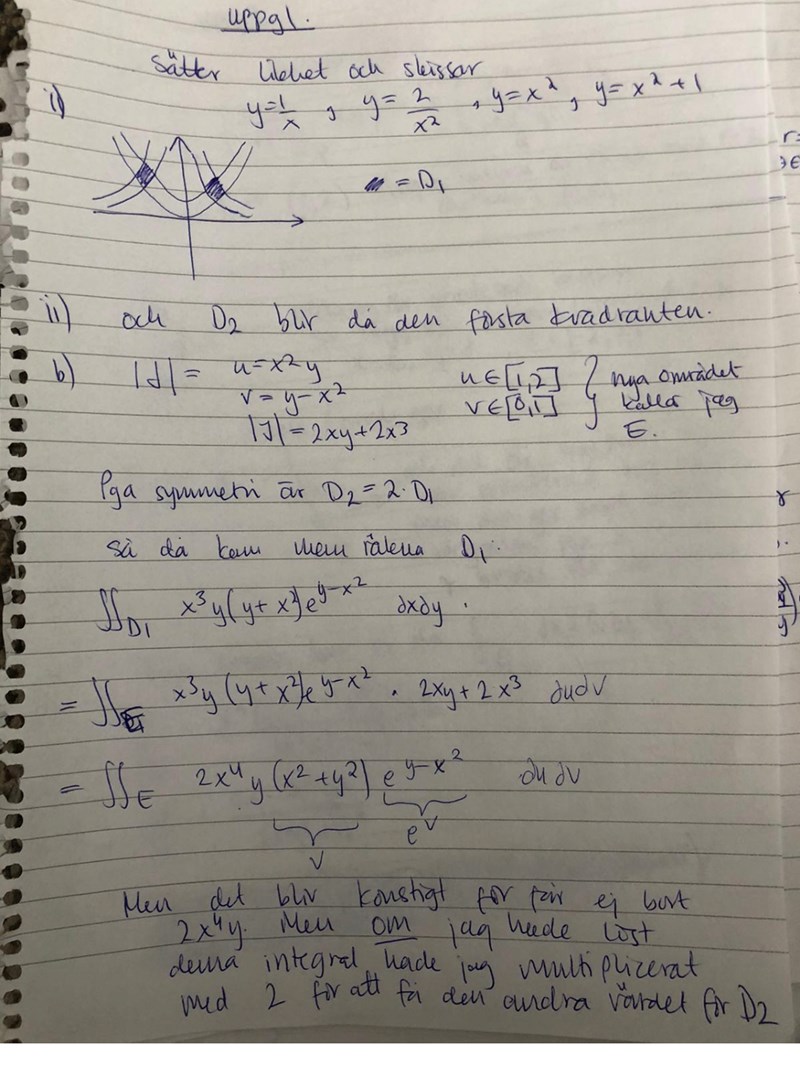 uppg1.
Sätter likhet och skissar
i) y=1/x , y= 2/x² , y=x² , y= x²+1
= D₁
ii) och D₂ blir då den första kvadranten.
b) |J| = u=x²y
v= y-x²
|J|=2xy+2x³
u∈[1,2]
v∈[0,1]
nya området
kallar jag
E.
Pga symmetri är D₂=2·D₁
så då kan man räkna D₁.
∬_D1 x³y(y+x²)e^(y-x²) dxdy .
= ∬_E x³y (y+x²)e^(y-x²) · 2xy+2x³ dudv
= ∬_E 2x⁴y (x²+y²) e^(y-x²) du dv
v
e^v
Men det blir konstigt för får ej bort
2x⁴y. Men om jag hade löst
denna integral hade jag multiplicerat
med 2 för att få den andra värdet för D2